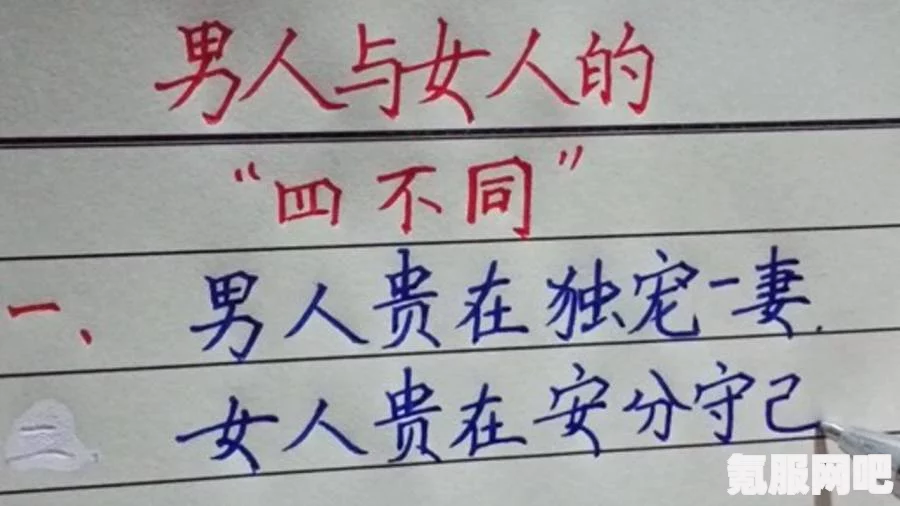 男人与女人的
“四不同”
一、男人贵在独宠一妻.
女人贵在安分守己
氪服网吧